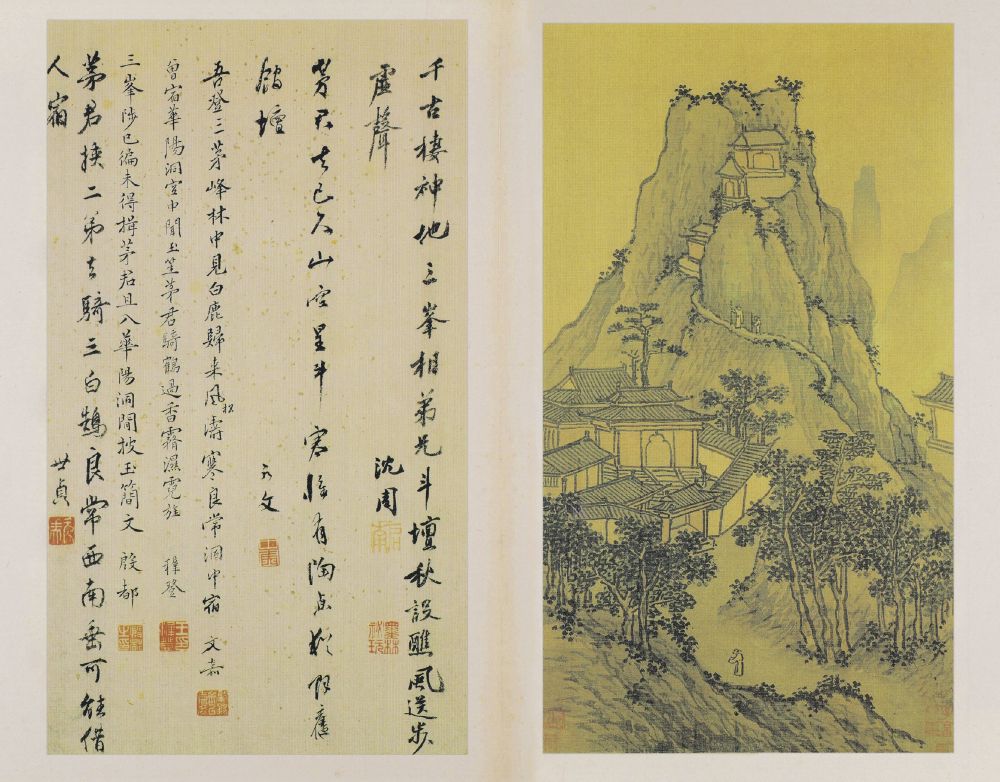 千古棲神地三峯相弟兄斗壇秋設醮風送步
虛聲
沈周
茅君去已久山空星斗寒有陶舊
館壇
吾登三茅峰林中見白鹿歸来風松濤寒良常洞中宿 文嘉
曾宿華陽洞宮中聞玉笙茅君騎鶴過香霧濕霓旌 穉登
三峯陟已徧未得揖茅君且入華陽洞閒披玉簡文 殷都
茅君挾二弟去騎三白鵠良常西南垂可能借
人宿
世貞